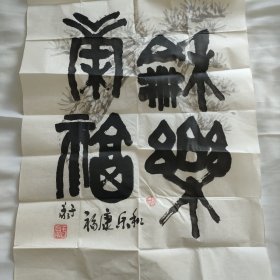 龢樂
康福
和乐康福